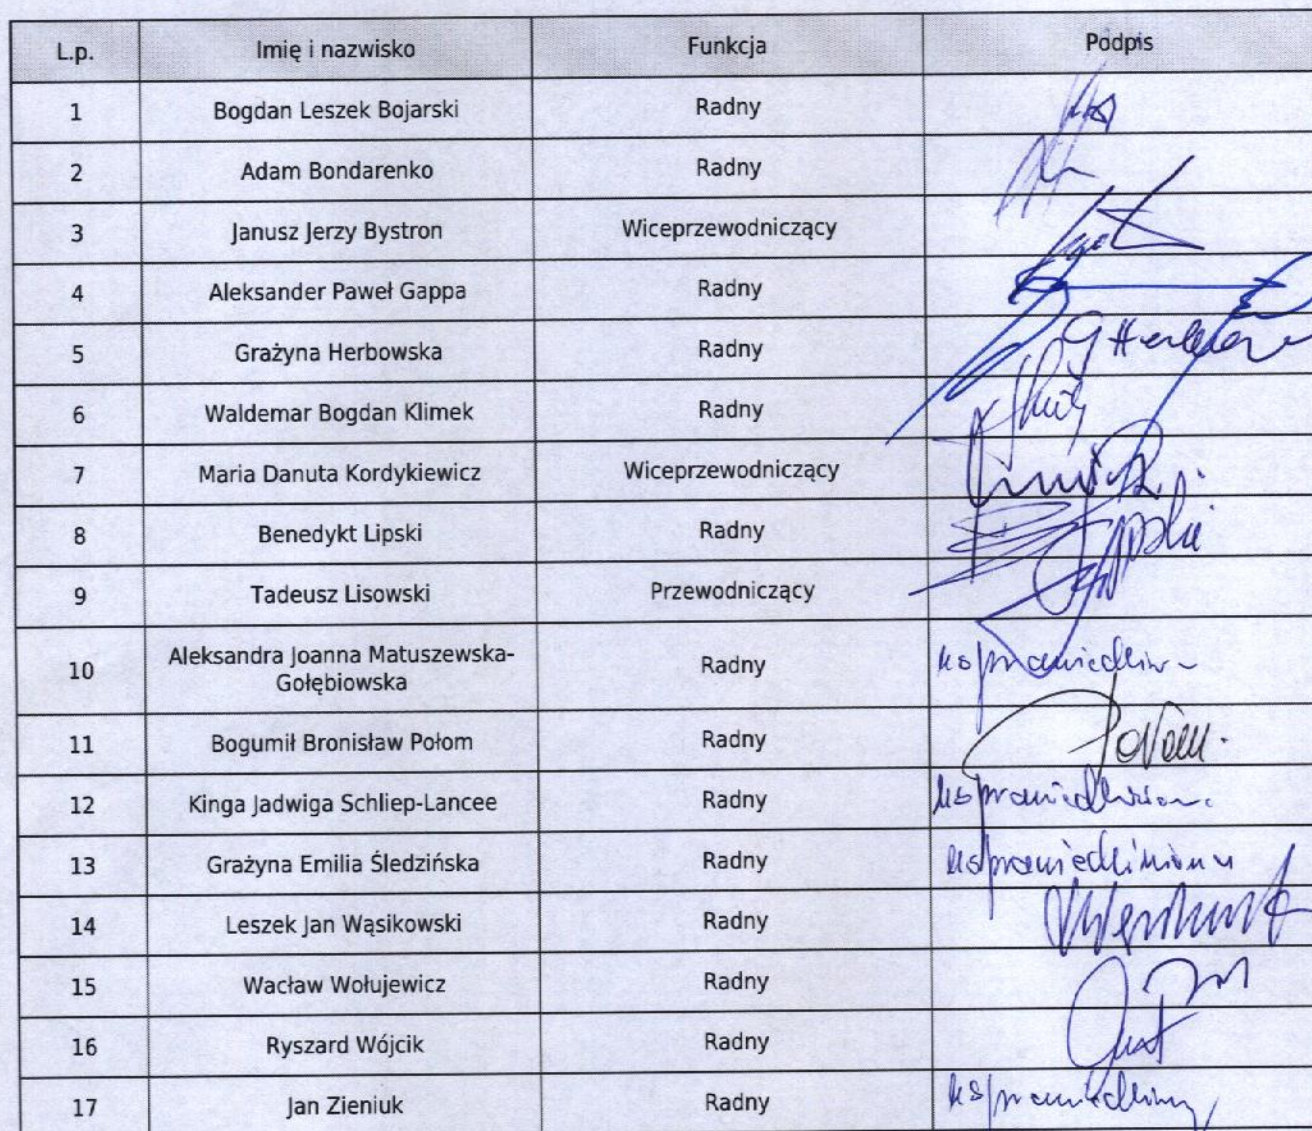 L.p. Imię i nazwisko Funkcja Podpis
1 Bogdan Leszek Bojarski Radny
2 Adam Bondarenko Radny
3 Janusz Jerzy Bystron Wiceprzewodniczący
4 Aleksander Paweł Gappa Radny
5 Grażyna Herbowska Radny
6 Waldemar Bogdan Klimek Radny
7 Maria Danuta Kordykiewicz Wiceprzewodniczący
8 Benedykt Lipski Radny
9 Tadeusz Lisowski Przewodniczący
10 Aleksandra Joanna Matuszewska-
Gołębiowska Radny
11 Bogumił Bronisław Połom Radny
12 Kinga Jadwiga Schliep-Lancee Radny
13 Grażyna Emilia Śledzińska Radny
14 Leszek Jan Wąsikowski Radny
15 Wacław Wołujewicz Radny
16 Ryszard Wójcik Radny
17 Jan Zieniuk Radny